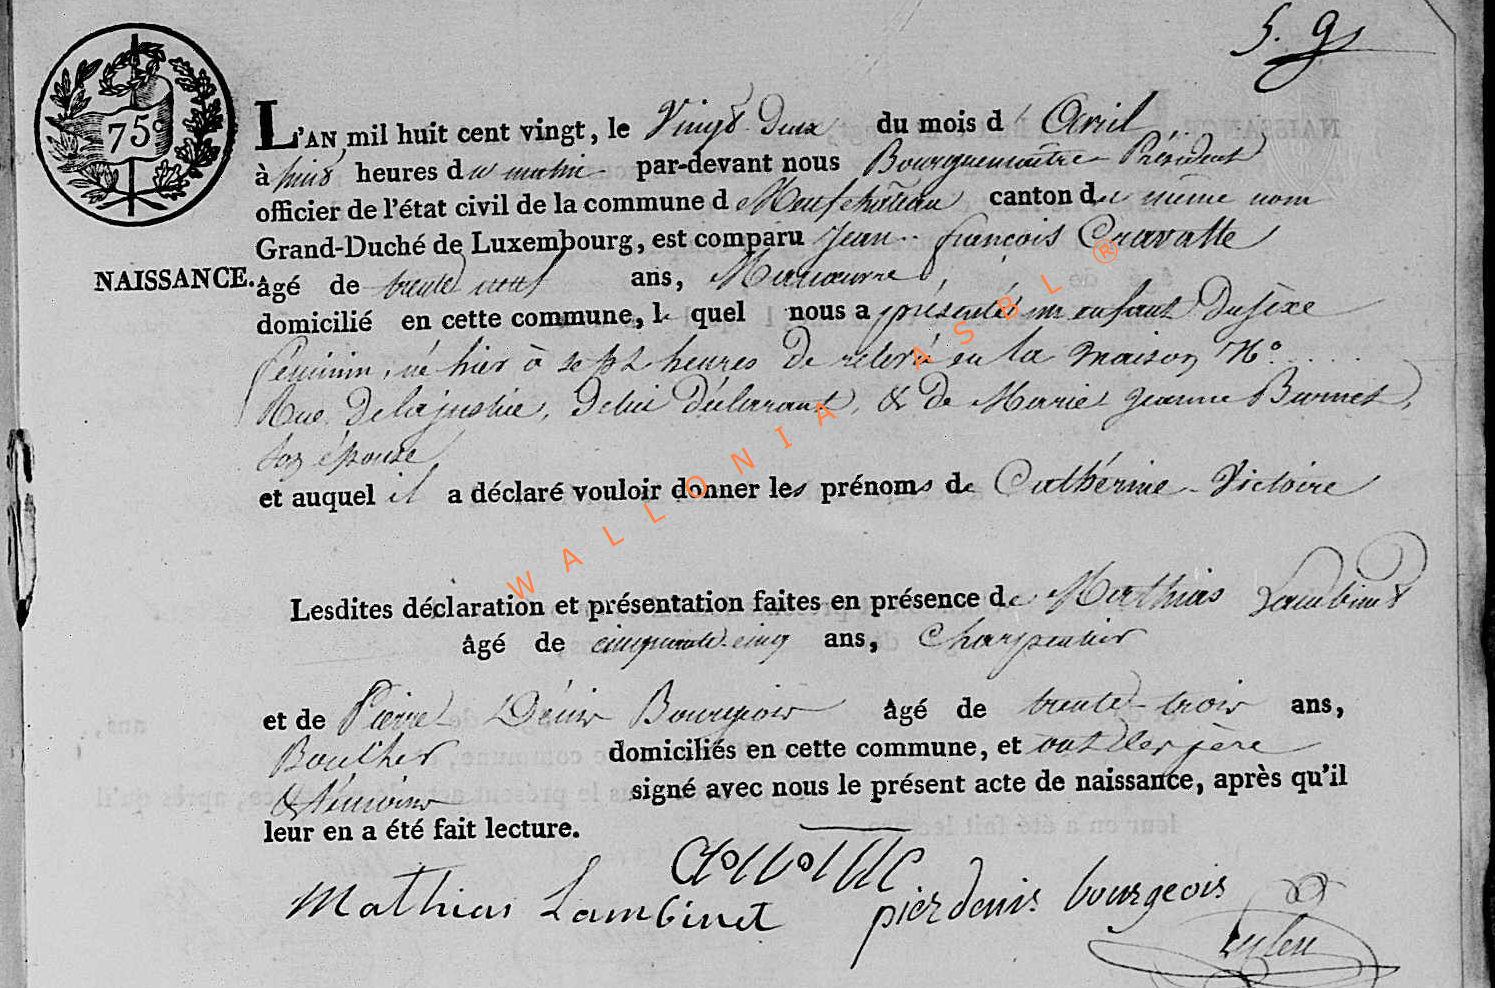 5. 9
75c
L'AN mil huit cent vingt, le Vingt Deux du mois d'Avril
à huit heures du matin par-devant nous Bourguemaître Président
officier de l'état civil de la commune de Neufchâteau canton du même nom
Grand-Duché de Luxembourg, est comparu Jean François Cravatte
NAISSANCE. âgé de trente neuf ans, Manœuvre
domicilié en cette commune, le quel nous a présenté un enfant Du sèxe
féminin, né hier à sept heures De relevé en la maison No.
Rue De la justice, De lui Déclarant, & de Marie Jeanne Burnet,
son épouse
et auquel il a déclaré vouloir donner les prénoms de Cathérine Victoire
Lesdites déclaration et présentation faites en présence de Mathias Lambinet
âgé de cinquante-cinq ans, Charpentier
et de Pierre Dénis Bourgois âgé de trente-trois ans,
Boucher domiciliés en cette commune, et ont les père
& témoins signé avec nous le présent acte de naissance, après qu'il
leur en a été fait lecture.
Mathias Lambinet pier denis bourgeois
WALLONIA ASBL ®